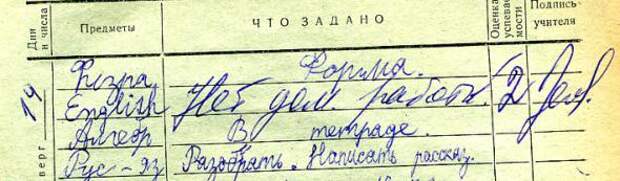 Дни и числа Предметы ЧТО ЗАДАНО Оценка успеваемости Подпись учителя
19 Физра Форма.
English Нет дом. работы. 2
Алгебр В тетраде.
Рус-яз Разобрать. Написать рассказ.
верг